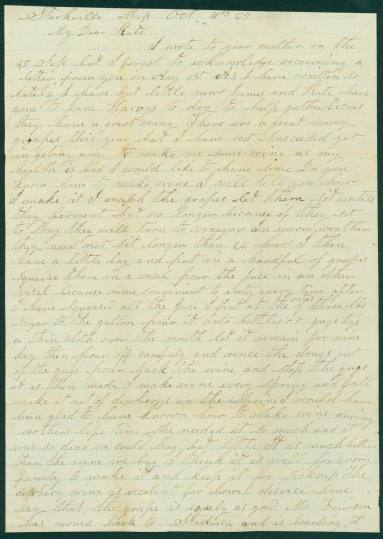 Starkville Miss Oct 4th 67
My Dear Kate
I wrote to your mother on the
28 Sep but I forgot to acknoledge receiving a
letter from you on Aug 1st As I have written so
lately I have but little news James and Kate have
gone to Jane to day to help gather
they have a great many There are a great many
grapes this year but I have not succeeded yet
in geting any to make me some wine as my
health is bad I would like to have some Do you
know how to make wine I will tell you how
I make it I mash the grapes let them set untill
they firment but no longer because if they set
to long they will turn to vinegar In warm weather
they need not set longer than 24 hours I then
have a little bag and put in a handful of grapes
squeese them in a vesel pour the juce in an other
vesel because more convenient to every time after
I have squeesed all the juce I put at the of three lbs
sugar to the gallon pour it into bottles or gugs tye
a thin cloth over the mouth let it remain for nine
days then pour off carefuly and rance the out
of the gugs pour back the wine and stop the gugs
it is then made I make wine every spring and fall
make it out of dewberys in the Spring I would have
bin glad to have known how to make wine during
mothers life time she needed it so much and it
was so dear we could buy but little It is much better
than the wine we buy I think it is well for every
family to make it and keep it for sickness The
dewbery wine is excelent for bowel disease some
say that the grape is equely as good Mr
has moved back to Starkville and is boarding at